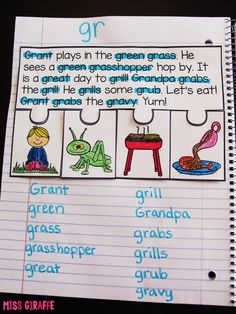 gr
Grant plays in the green grass. He
sees a green grasshopper hop by. It
is a great day to grill! Grandpa grabs
the grill! He grills some grub. Let's eat!
Grant grabs the gravy. Yum!
Grant
green
grass
grasshopper
great
grill
Grandpa
grabs
grills
grub
gravy
MISS GIRAFFE